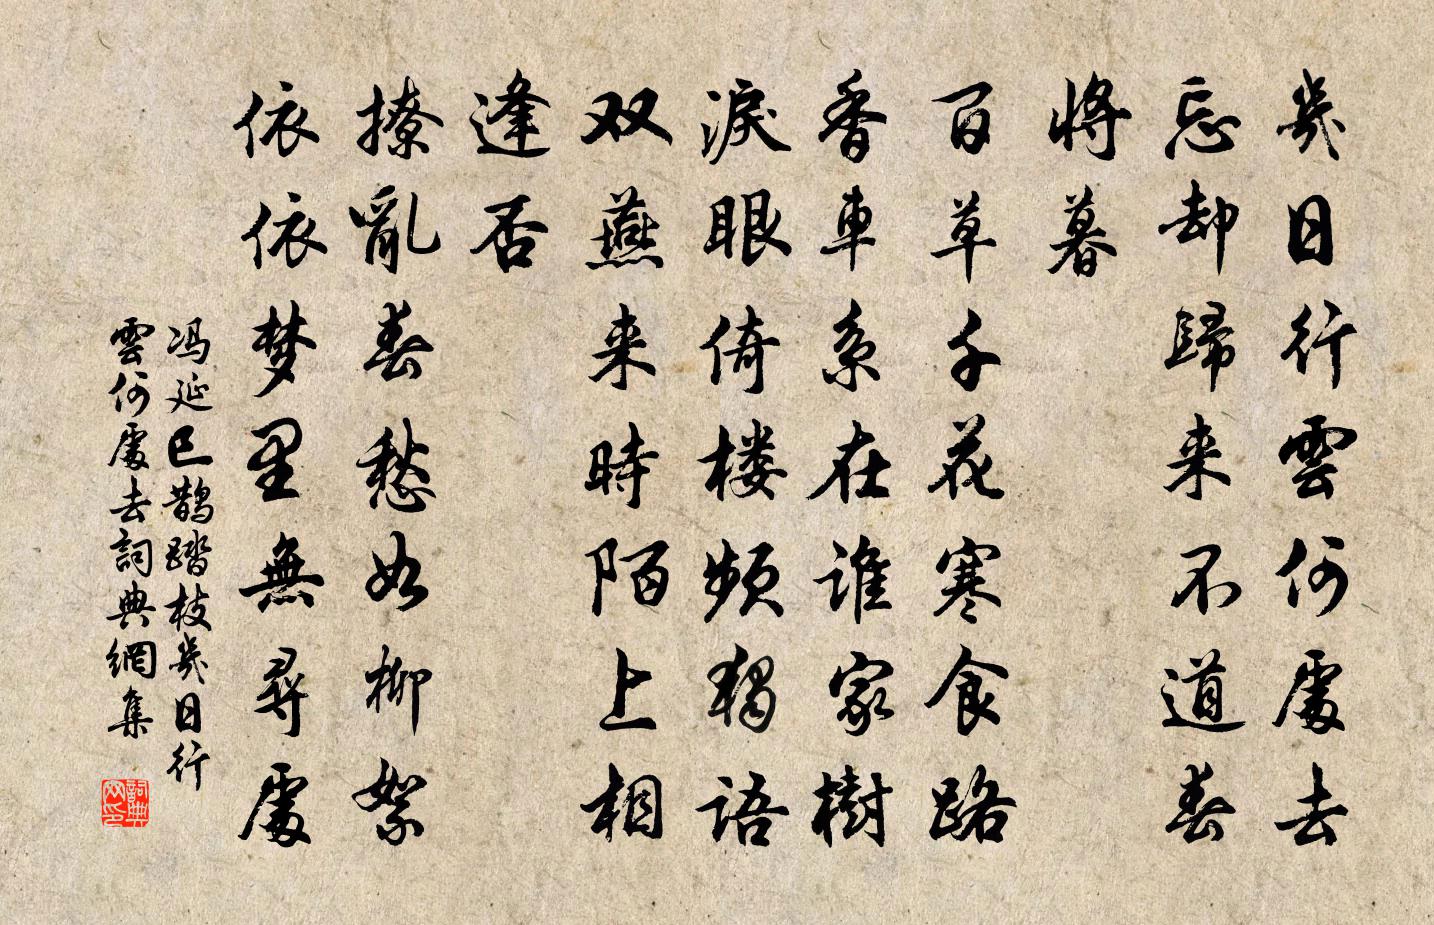 幾日行雲何處去
忘却歸来不道春
將暮
百草千花寒食路
香車系在誰家樹
淚眼倚楼頻獨語
双燕来時陌上相
逢否
撩亂春愁如柳絮
依依梦里無尋處
冯延巳鹊踏枝幾日行
雲何處去詞典網集
詞典
网印